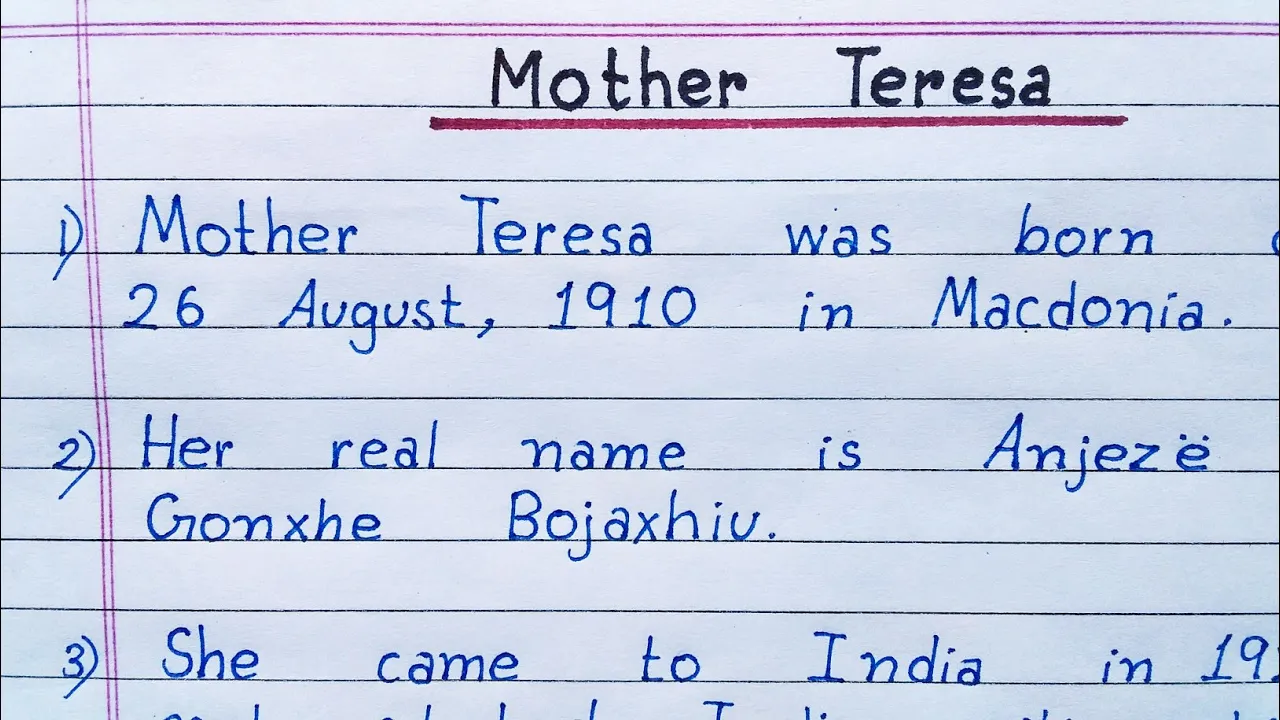 Mother Teresa
1) Mother Teresa was born
26 August, 1910 in Macdonia.
2) Her real name is Anjezë
Gonxhe Bojaxhiu.
3) She came to India in